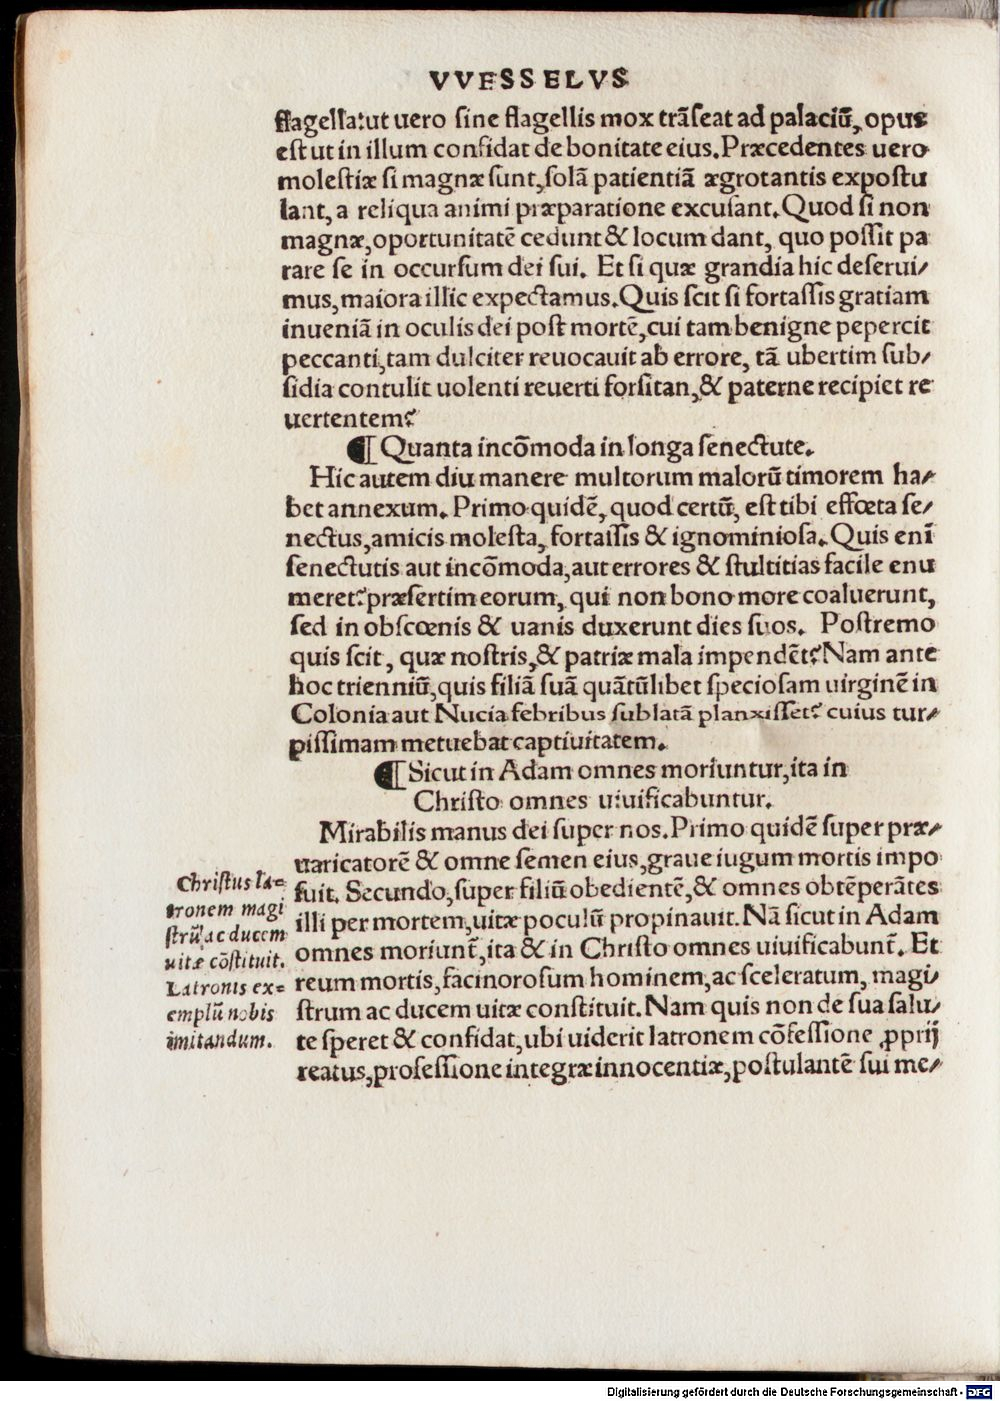 VVESSELVS
flagella:ut uero sine flagellis mox trãseat ad palaciũ, opus
est ut in illum confidat de bonitate eius. Præcedentes uero
molestiæ si magnæ sunt, solã patientiã ægrotantis expostu
lant, a reliqua animi præparatione excusant. Quod si non
magnæ, oportunitatẽ cedunt & locum dant, quo possit pa
rare se in occursum dei sui. Et si quæ grandia hic deserui/
mus, maiora illic expectamus. Quis scit si fortassis gratiam
inueniã in oculis dei post mortẽ, cui tam benigne pepercit
peccanti, tam dulciter reuocauit ab errore, tã ubertim sub/
sidia contulit uolenti reuerti forsitan, & paterne recipiet re
uertentem?
¶ Quanta incõmoda in longa senectute.
Hic autem diu manere multorum malorũ timorem ha/
bet annexum. Primo quidẽ, quod certũ, est tibi effœta se/
nectus, amicis molesta, fortassis & ignominiosa. Quis enĩ
senectutis aut incõmoda, aut errores & stultitias facile enu
meret? præsertim eorum, qui non bono more coaluerunt,
sed in obscœnis & uanis duxerunt dies suos. Postremo
quis scit, quæ nostris, & patriæ mala impendẽt? Nam ante
hoc trienniũ, quis filiã suã quãtũlibet speciosam uirginẽ in
Colonia aut Nucia febribus sublatã planxisset? cuius tur/
pissimam metuebat captiuitatem.
¶ Sicut in Adam omnes moriuntur, ita in
Christo omnes uiuificabuntur.
Mirabilis manus dei super nos. Primo quidẽ super præ/
uaricatorẽ & omne semen eius, graue iugum mortis impo
suit. Secundo, super filiũ obedientẽ, & omnes obtẽperãtes
illi per mortem, uitæ poculũ propinauit. Nã sicut in Adam
omnes moriunt̃, ita & in Christo omnes uiuificabunt̃. Et
reum mortis, facinorosum hominem, ac sceleratum, magi/
strum ac ducem uitæ constituit. Nam quis non de sua salu/
te speret & confidat, ubi uiderit latronem cõfessione ꝓprij
reatus, professione integræ innocentiæ, postulantẽ sui me/
Christus la=
tronem magi
strũ ac ducem
uitæ cõstituit.
Latronis ex=
emplũ nobis
imitandum.
Digitalisierung gefördert durch die Deutsche Forschungsgemeinschaft - DFG